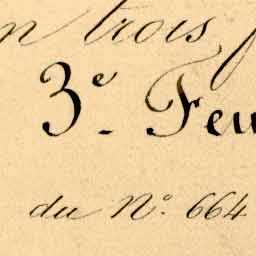 n trois f
3e. Feu
du No. 664